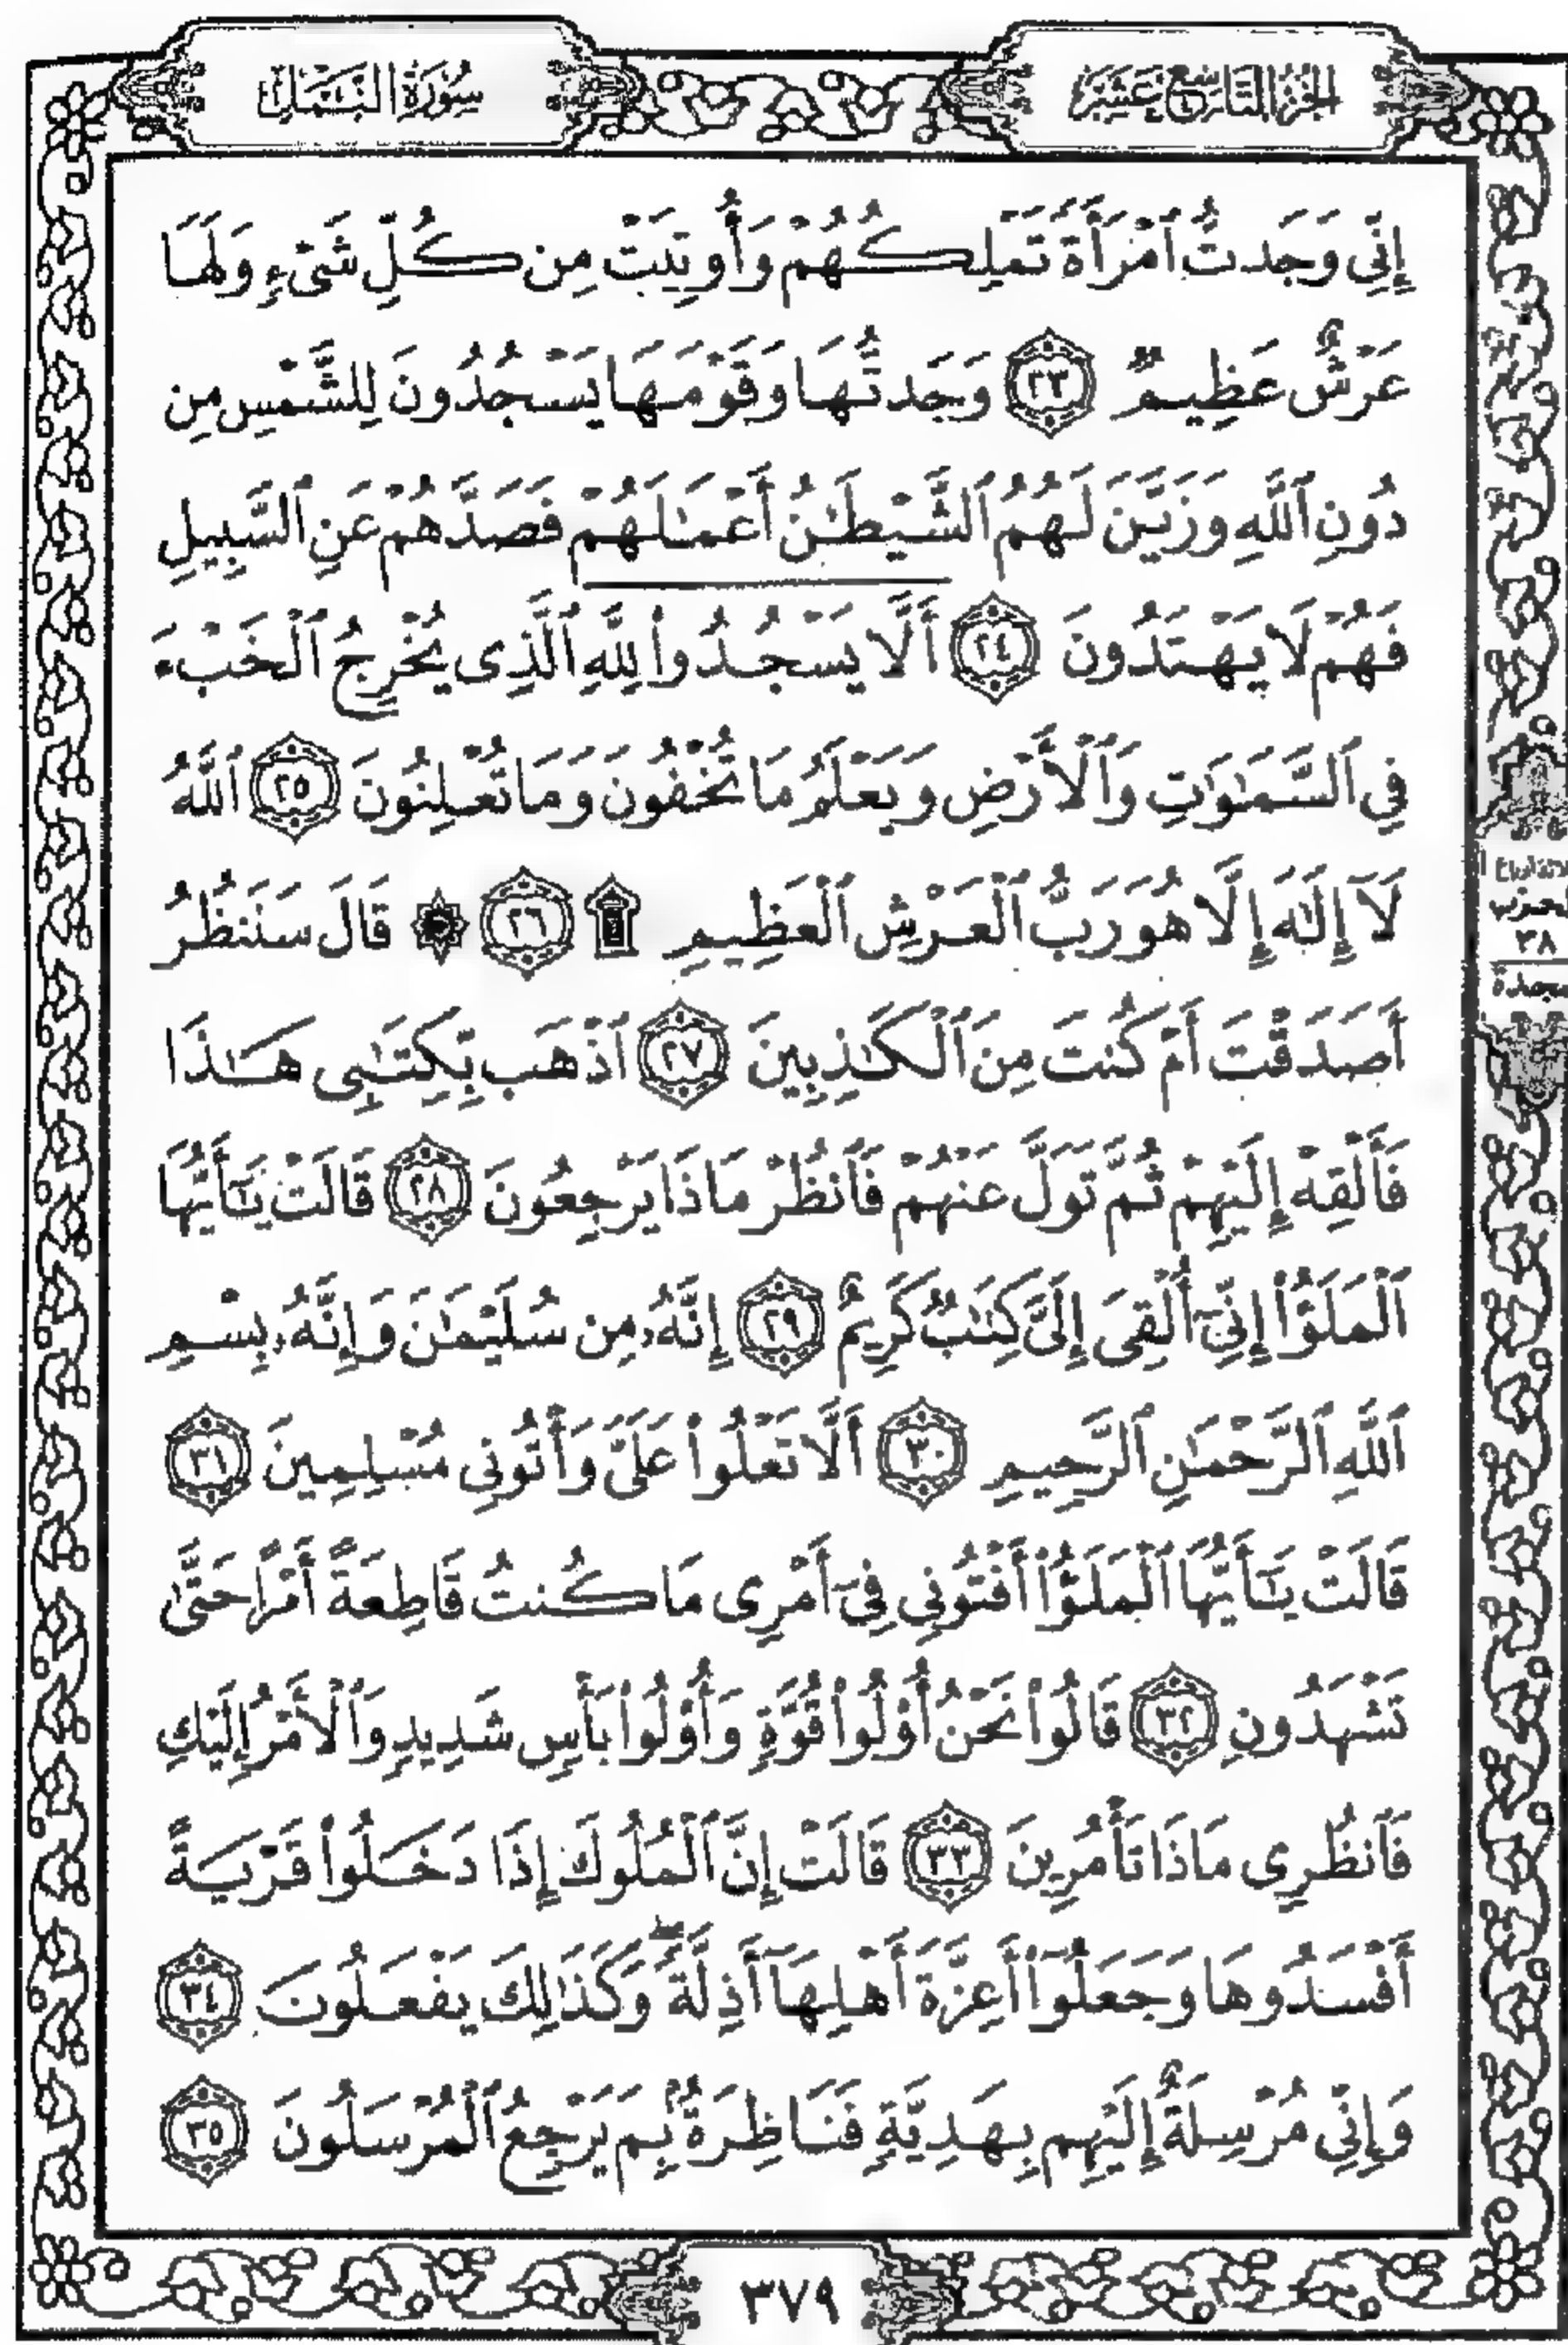 الجزء التاسع عشر
سورة النمل
إِنِّي وَجَدتُّ ٱمْرَأَةً تَمْلِكُهُمْ وَأُوتِيَتْ مِن كُلِّ شَىْءٍ وَلَهَا
عَرْشٌ عَظِيمٌ ٢٣ وَجَدتُّهَا وَقَوْمَهَا يَسْجُدُونَ لِلشَّمْسِ مِن
دُونِ ٱللَّهِ وَزَيَّنَ لَهُمُ ٱلشَّيْطَـٰنُ أَعْمَـٰلَهُمْ فَصَدَّهُمْ عَنِ ٱلسَّبِيلِ
فَهُمْ لَا يَهْتَدُونَ ٢٤ أَلَّا يَسْجُدُوا۟ لِلَّهِ ٱلَّذِى يُخْرِجُ ٱلْخَبْءَ
فِي ٱلسَّمَـٰوَٰتِ وَٱلْأَرْضِ وَيَعْلَمُ مَا تُخْفُونَ وَمَا تُعْلِنُونَ ٢٥ ٱللَّهُ
لَآ إِلَـٰهَ إِلَّا هُوَ رَبُّ ٱلْعَرْشِ ٱلْعَظِيمِ ۩ ٢٦ ۞ قَالَ سَنَنظُرُ
أَصَدَقْتَ أَمْ كُنتَ مِنَ ٱلْكَـٰذِبِينَ ٢٧ ٱذْهَب بِّكِتَـٰبِى هَـٰذَا
فَأَلْقِهْ إِلَيْهِمْ ثُمَّ تَوَلَّ عَنْهُمْ فَٱنظُرْ مَاذَا يَرْجِعُونَ ٢٨ قَالَتْ يَـٰٓأَيُّهَا
ٱلْمَلَؤُا۟ إِنِّىٓ أُلْقِىَ إِلَىَّ كِتَـٰبٌ كَرِيمٌ ٢٩ إِنَّهُۥ مِن سُلَيْمَـٰنَ وَإِنَّهُۥ بِسْمِ
ٱللَّهِ ٱلرَّحْمَـٰنِ ٱلرَّحِيمِ ٣٠ أَلَّا تَعْلُوا۟ عَلَىَّ وَأْتُونِى مُسْلِمِينَ ٣١
قَالَتْ يَـٰٓأَيُّهَا ٱلْمَلَؤُا۟ أَفْتُونِى فِىٓ أَمْرِى مَا كُنتُ قَاطِعَةً أَمْرًا حَتَّىٰ
تَشْهَدُونِ ٣٢ قَالُوا۟ نَحْنُ أُو۟لُوا۟ قُوَّةٍ وَأُو۟لُوا۟ بَأْسٍ شَدِيدٍ وَٱلْأَمْرُ إِلَيْكِ
فَٱنظُرِى مَاذَا تَأْمُرِينَ ٣٣ قَالَتْ إِنَّ ٱلْمُلُوكَ إِذَا دَخَلُوا۟ قَرْيَةً
أَفْسَدُوهَا وَجَعَلُوٓا۟ أَعِزَّةَ أَهْلِهَآ أَذِلَّةً ۖ وَكَذَٰلِكَ يَفْعَلُونَ ٣٤
وَإِنِّى مُرْسِلَةٌ إِلَيْهِم بِهَدِيَّةٍ فَنَاظِرَةٌۢ بِمَ يَرْجِعُ ٱلْمُرْسَلُونَ ٣٥
٣٨
سجدة
٣٧٩